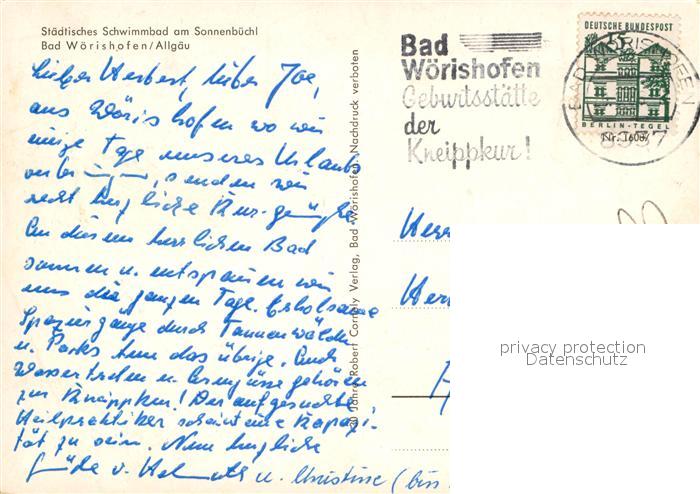 Städtisches Schwimmbad am Sonnenbüchl
Bad Wörishofen/Allgäu
Lieber Herbert, lieber Joe,
aus Wörishofen wo wir
einige Tage unseres Urlaubs
verbringen, senden wir
recht herzliche Kur-grüße
An diesem herrlichen Bad
sonnen u. entspannen wir
uns die ganzen Tage. Erholsame
Spaziergänge durch Tannenwälder
u. Parks tun das übrige. Auch
Wassertreten u. Armgüsse gehören
zur Kneippkur! Der aufgesuchte
Heilpraktiker scheint eine Kapazi-
tät zu sein. Nun herzliche
Grüße v. Helmuth u. Christine (bin
30 Jahre Robert Cornely Verlag, Bad Wörishofen - Nachdruck verboten
Bad
Wörishofen
Geburtsstätte
der
Kneippkur!
DEUTSCHE BUNDESPOST
15
BERLIN-TEGEL
BAD WÖRISHOFEN
8937
Herr
privacy protection
Datenschutz